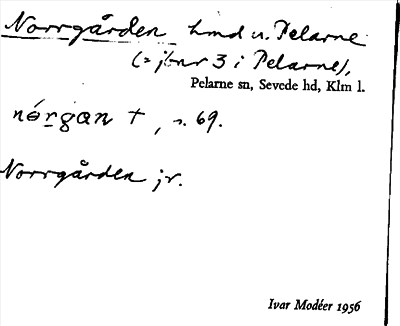 Norrgården hmd u. Pelarne
(= jbnr 3 i Pelarne),
Pelarne sn, Sevede hd, Klm l.
nórgan † , s. 69.
Norrgården jr.
Ivar Modéer 1956